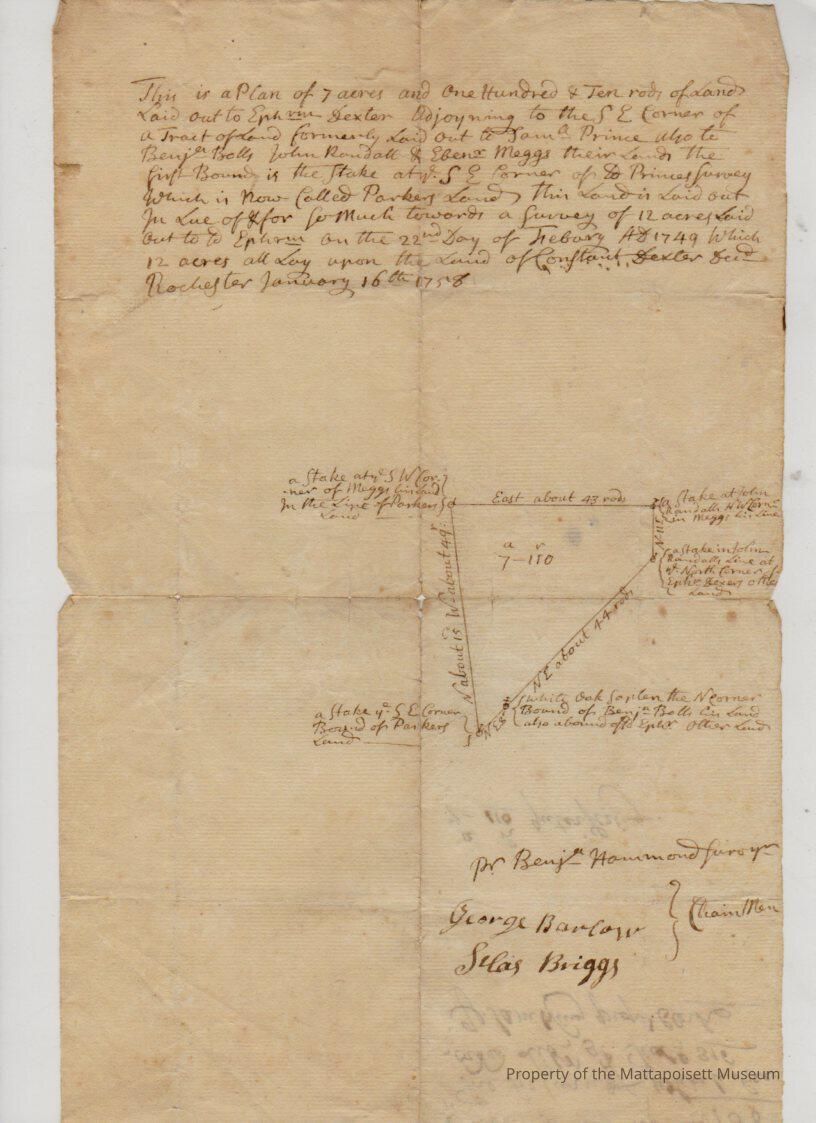 This is a Plan of 7 acres and One Hundred & Ten rods of Land
Laid out to Ephrm Dexter Adjoyning to the S E Corner of
a Tract of Land formerly Laid out to Samll Prince also to
Benjn Bolls John Randall & Ebenr Meggs their Lands the
first Bound is the Stake at ye S E Corner of sd Princes Survey
Which is Now Called Parkers Land this Land is Laid out
In Lue of & for so Much towards a Survey of 12 acres Laid
out to sd Ephrm on the 22nd Day of Febury AD 1749 Which
12 acres all Lay upon the Land of Constant Dexter Decd
Rochester January 16th 1758
a Stake at ye S W Cor-
-ner of Meggs
In the Line of Parkers
Land
East about 43 rods
a Stake at John
Randalls N W Corn
in Meggs his Line
a r
7-110
a Stake in John
Randalls Line at
ye North Corner of
Ephr Dexers other
Land
N about 15 W about 49 r
N E about 44 rods
a Stake ye S E Corner
Bound of Parkers
Land
white Oak Saplen the N Corner
Bound of Benjn Bolls his Land
also a bound of sd Ephr Other Land
Pr Benjn Hammond Survoyr
George Barlow
Silas Briggs
Chain Men
Property of the Mattapoisett Museum